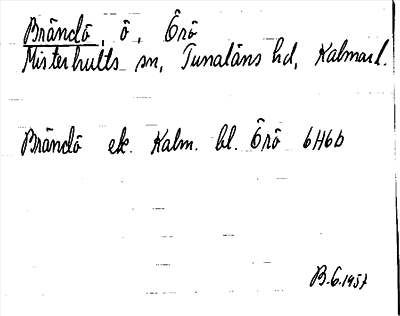 Brändö, ö, Örö
Misterhults sn, Tunaläns hd, Kalmar l.
Brändö ek. Kalm. bl. Örö 6H6b
B.6.1957